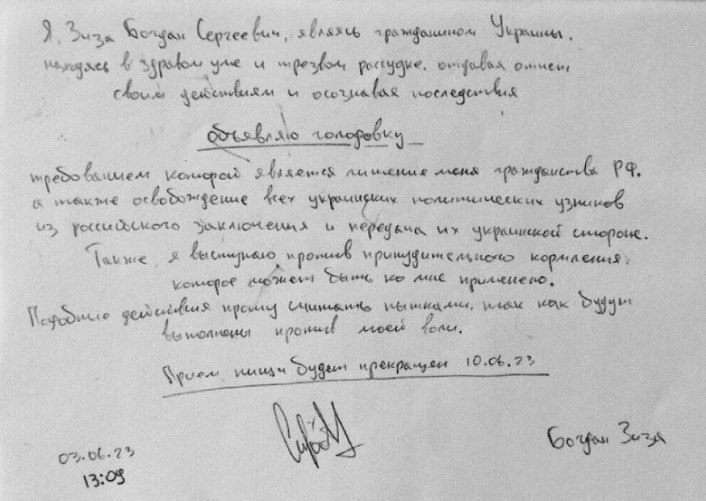 Я, Зиза Богдан Сергеевич, являясь гражданином Украины,
находясь в здравом уме и трезвом рассудке, отдавая отчет
своим действиям и осознавая последствия
объявляю голодовку
требованием которой является лишение меня гражданства РФ,
а также освобождение всех украинских политических узников
из российского заключения и передача их украинской стороне.
Также, я выступаю против принудительного кормления,
которое может быть ко мне применено.
Подобные действия прошу считать пытками, так как будут
выполнены против моей воли.
Прием пищи будет прекращен 10.06.23
03.06.23
13:09
Богдан Зиза